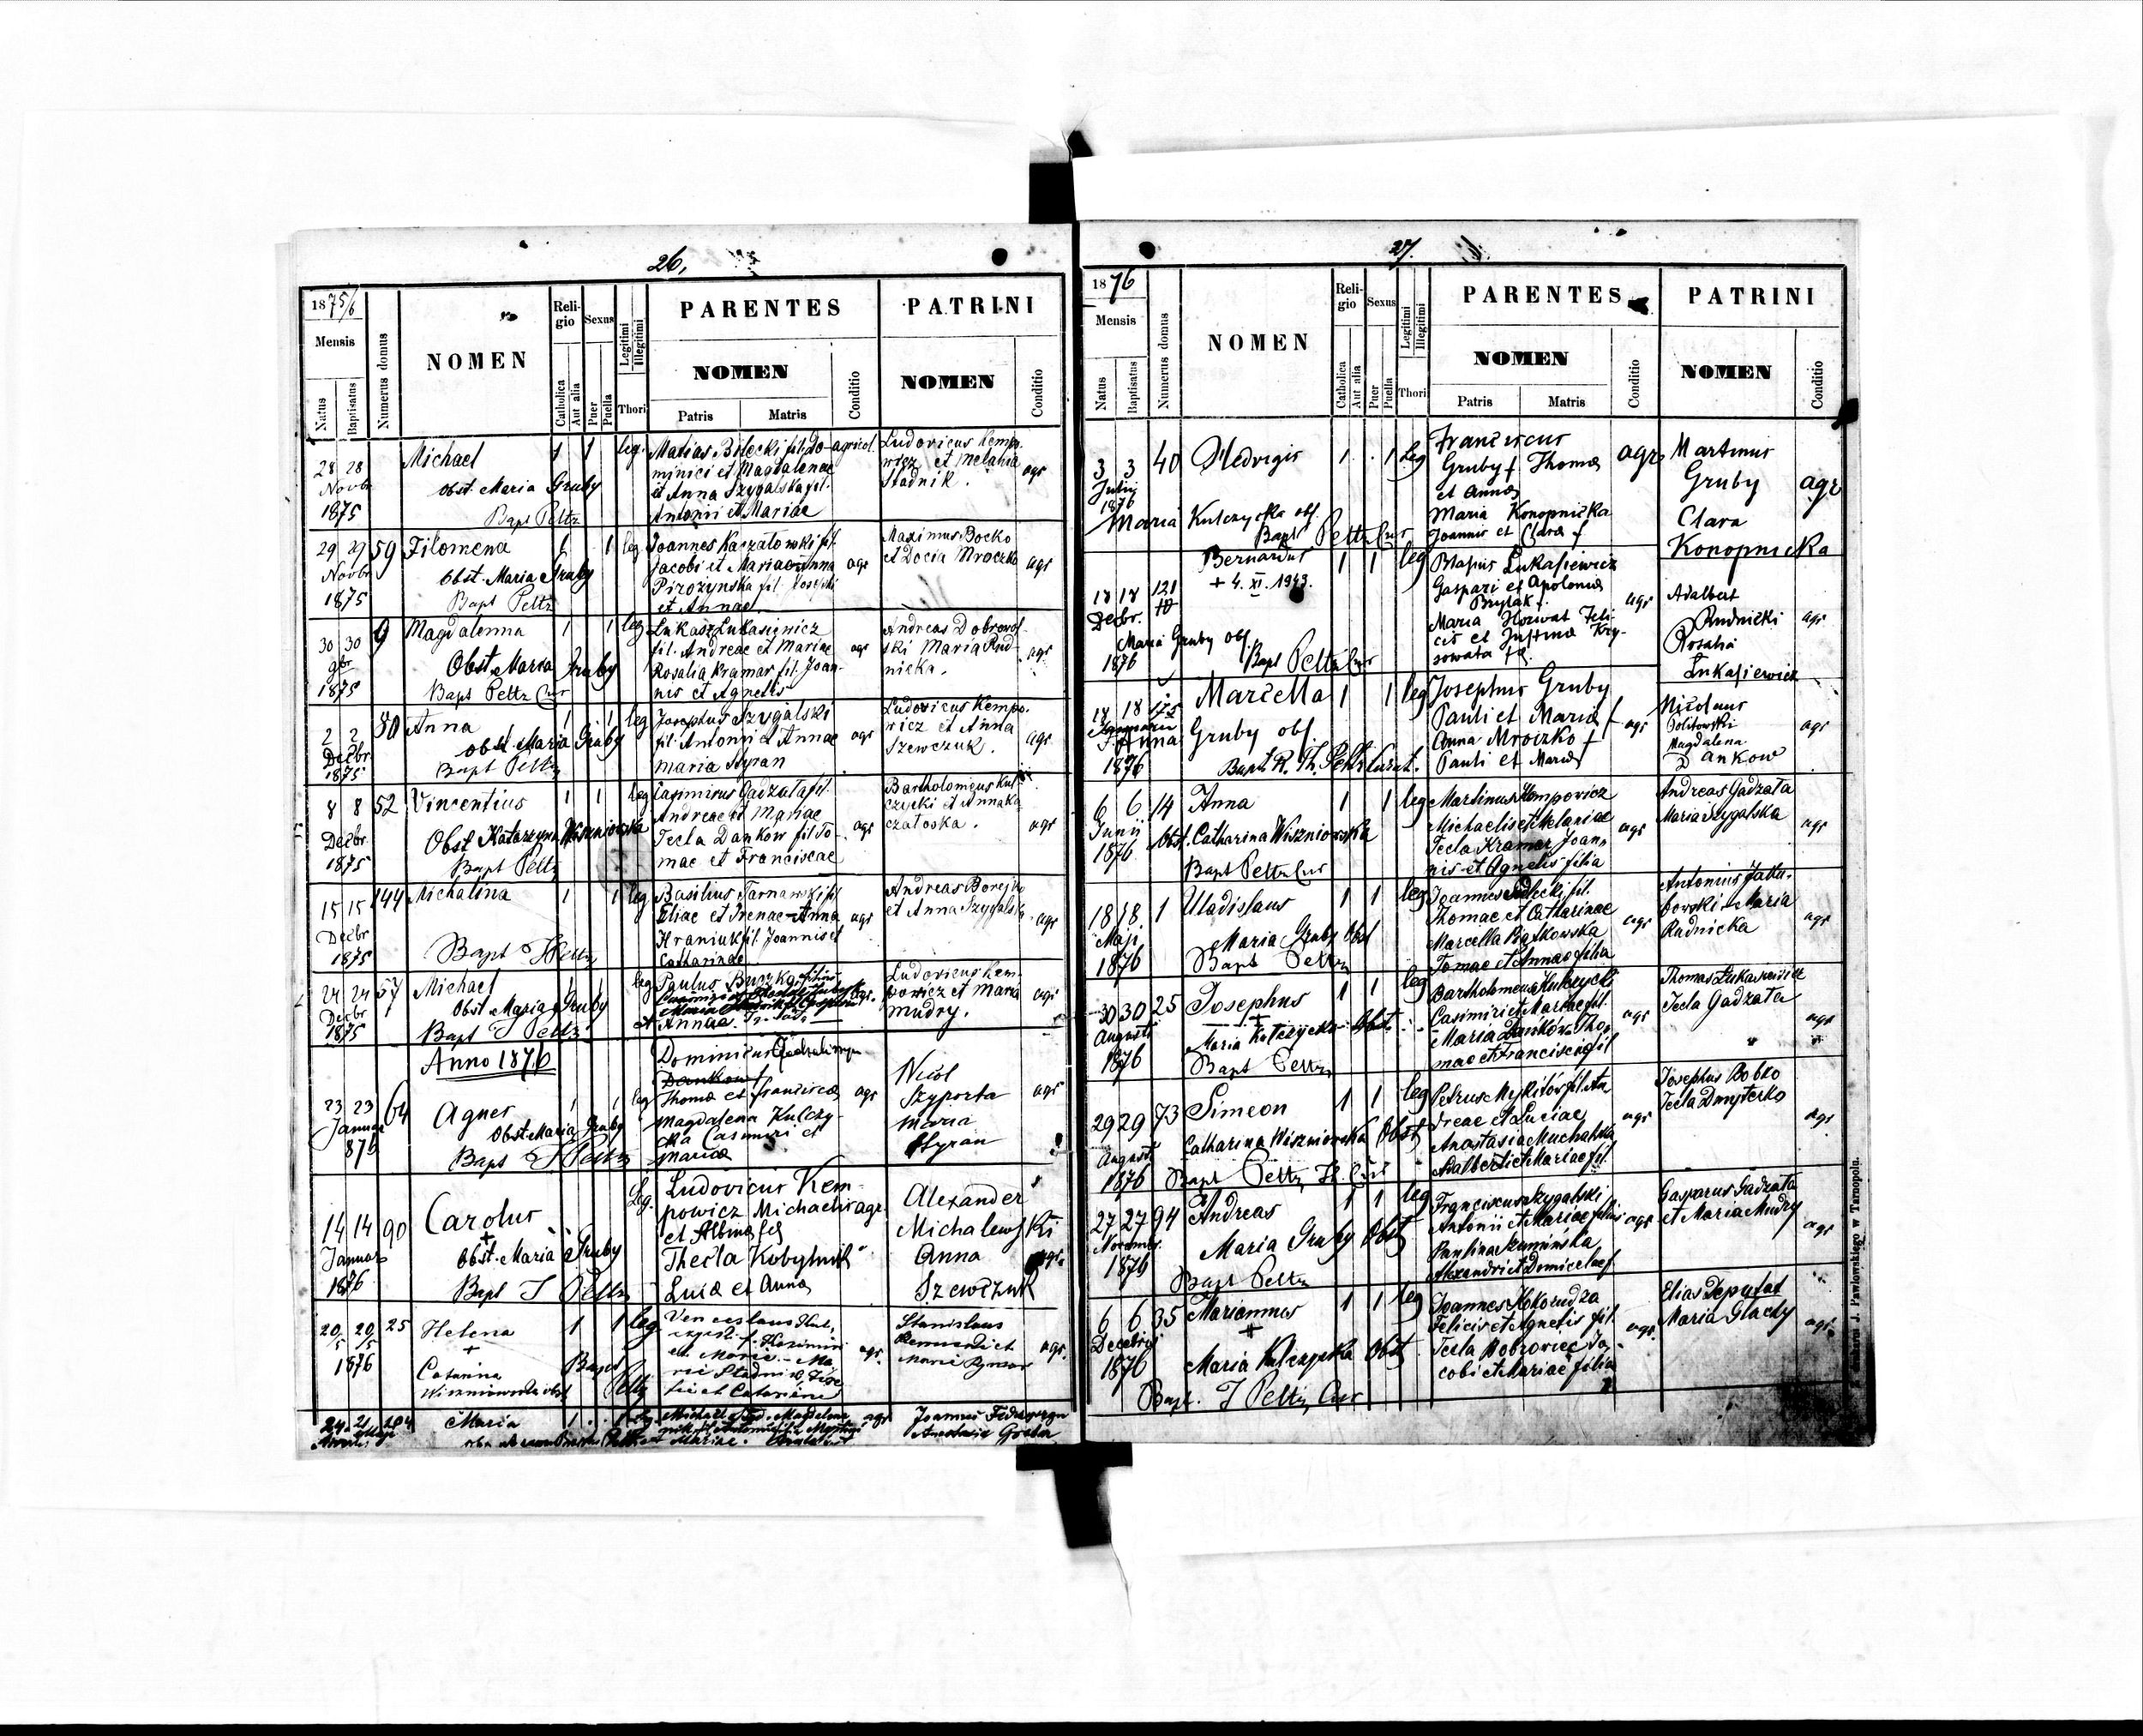 26,
1875/6
Mensis
Natus
Baptisatus
Numerus domus
NOMEN
Reli-
gio
Catholica
Aut alia
Sexus
Puer
Puella
Legitimi
Illegitimi
Thori
PARENTES
NOMEN
Patris
Matris
Conditio
PATRINI
NOMEN
Conditio
28 28
Novbr
1875
Michael
Obst. Maria Gruby
Bapt Peltz
1 1 leg.
Matias Bilecki fil. Do-
minici et Magdalenae
et Anna Szygalska fil.
Antonii et Mariae
agricol.
Ludovicus Kempo-
wicz et Melania
Stadnik.
agr
29 29 59
Novbr
1875
Filomena
Obst. Maria Gruby
Bapt Peltz
1 1 leg
Joannes Kaczatowski fil.
Jacobi et Mariae Anna
Pirozynska fil. Josephi
et Annae.
agr
Maximus Bocko
et Docia Mroczko
agr
30 30 9
9br
1875
Magdalenna
Obst. Maria Gruby
Bapt Peltz Cur
1 1 leg
Lukasz Lukasiewicz
fil. Andreae et Mariae
Rosalia Kramar fil. Joan-
nis et Agnetis
agr
Andreas Dobrowol-
ski Maria Rud-
nicka.
agr.
2 2 80
Decbr
1875
Anna
Obst. Maria Gruby
Bapt Peltz
1 1 leg
Josephus Szygalski
fil. Antonii et Annae
Maria Hyran
agr
Ludovicus Kempo-
wicz et Anna
Szewczuk.
agr
8 8 52
Decbr
1875
Vincentius
Obst Katarzyna Wiszniowska
Bapt Peltz
1 1 leg
Casimirus Gadzata fil.
Andreae et Mariae
Tecla Dankow fil To-
mae et Franciscae
agr
Bartholomeus Kul-
czycki et Anna Ka
czatoska.
agr
15 15 144
Decbr
1875
Michalina
Bapt Peltz
1 1 leg
Basilius Tarnawski fil
Eliae et Irenae-Anna
Hraniuk fil. Joannis et
Catharinae
agr
Andreas Borejko
et Anna Szygalska
agr
24 24 57
Decbr
1875
Michael
Obst Maria Gruby
Bapt J Peltz
1 1 leg
Paulus Buzka filius
et Annae.
agr.
Ludovicus Kem-
powicz et Maria
Mudry.
agr
Anno 1876
23 23 64
Januar
876
Agnes
Obst Maria Gruby
Bapt J Peltz
1 1 leg
Dominicus
Dankow
Thomae et Franciscae
Magdalena Kulczy-
cka Casimiri et
Mariae
agr
Nicol
Szyporta
Maria
Hyran
agr
14 14 90
Januar
1876
Carolus
+
Obst. Maria Gruby
Bapt J Peltz
Leg.
Ludovicus Kem-
powicz Michaelis
et Albinae
Thecla Kobylnik
Lucae et Annae
agr.
Alexander
Michalewski
Anna
Szewczuk
agr.
20/5 20/5 25
1876
Helena
+
Catarina
Wiszniowska obst
Bapt
Peltz
1 1 leg
agr.
Stanislaus
agr.
Maria
agr
27.
1876
Mensis
Natus
Baptisatus
Numerus domus
NOMEN
Reli-
gio
Catholica
Aut alia
Sexus
Puer
Puella
Legitimi
Illegitimi
Thori
PARENTES
NOMEN
Patris
Matris
Conditio
PATRINI
NOMEN
Conditio
3 3 40
Julij
1876
Hedvigis
Maria Kulczycka obs.
Bapt Peltz Cur
1 1 leg
Franciscus
Gruby f Thomae
et Annae
Maria Konopnicka
Joannis et Clarae f
agr
Martinus
Gruby
Clara
Konopnicka
agr
18 18 121
Decbr.
1876
Bernardus
+ 4. XI. 1943.
Maria Gruby obs.
Bapt Peltz Cur
1 1 leg
Blasius Lukasiewicz
Gaspari et Apolonia
Bryłak f.
Maria Horwat Feli-
cis et Justinae Kry-
sowata
agr
Adalbert
Rudnicki
Rosalia
Lukasiewicz
agr
18 18 175
Januarii
1876
Marcella
Anna Gruby obs.
Bapt R. Th. Peltz Curat.
1 1 leg
Josephus Gruby
Pauli et Mariae f
Anna Mroczko f
Pauli et Mariae
agr
Nicolaus
Politowski
Magdalena
Dankow
agr
6 6 14
Junii
1876
Anna
Obst. Catharina Wiszniowska
Bapt Peltz Cur
1 1 leg
Martinus Kempowicz
Michaelis et Melaniae
Tecla Kramar Joan-
nis et Agnetis filia
agr
Andreas Gadzata
Maria Szygalska
agr
18 18 1
Maji
1876
Uladislaus
Maria Gruby Obst
Bapt Peltz
1 1 leg
Joannes
Thomae et Catharinae
Marcella Bątkowska
Tomae et Annae filia
agr
Antonius Jaku-
bowski-Maria
Rudnicka
agr
30 30 25
Augusti
1876
Josephus
+
Maria Kulczycka Obst
Bapt Peltz
1 1 leg
Bartholomeus Kulczycki
Casimiri et Mariae fil.
Maria Danków Tho-
mae et Franciscae fil
agr
Thomas Łukaszewicz
Tecla Gadzata
agr
29 29 73
August
1876
Simeon
Catharina Wiszniowska Obst
Bapt Peltz Cur
1 1 leg
Petrus Mykitów fil. An
dreae et Luciae
Anastasia Muchalska
Adalberti et Mariae fil
agr
Josephus Bobko
Tecla Dmyterko
agr
27 27 94
Novembr.
1876
Andreas
Maria Gruby Obst
Bapt Peltz
1 1 leg
Franciscus Szygalski
Antonii et Mariae filius
Paulina Szumińska
Alexandri et Domicelae f.
agr
Gasparus Gadzata
et Maria Mudry
agr
6 6 35
Decembris
1876
Mariannus
+
Maria Kulczycka Obst
Bapt. J Peltz Cur
1 1 leg
Joannes Kokorudza
Felicis et Agnetis fil.
Tecla Bobrowiec Ja-
cobi et Mariae filia
agr.
Elias Deputat
Maria Glacky
agr.
Drukarni J. Pawlowskiego w Tarnopolu.